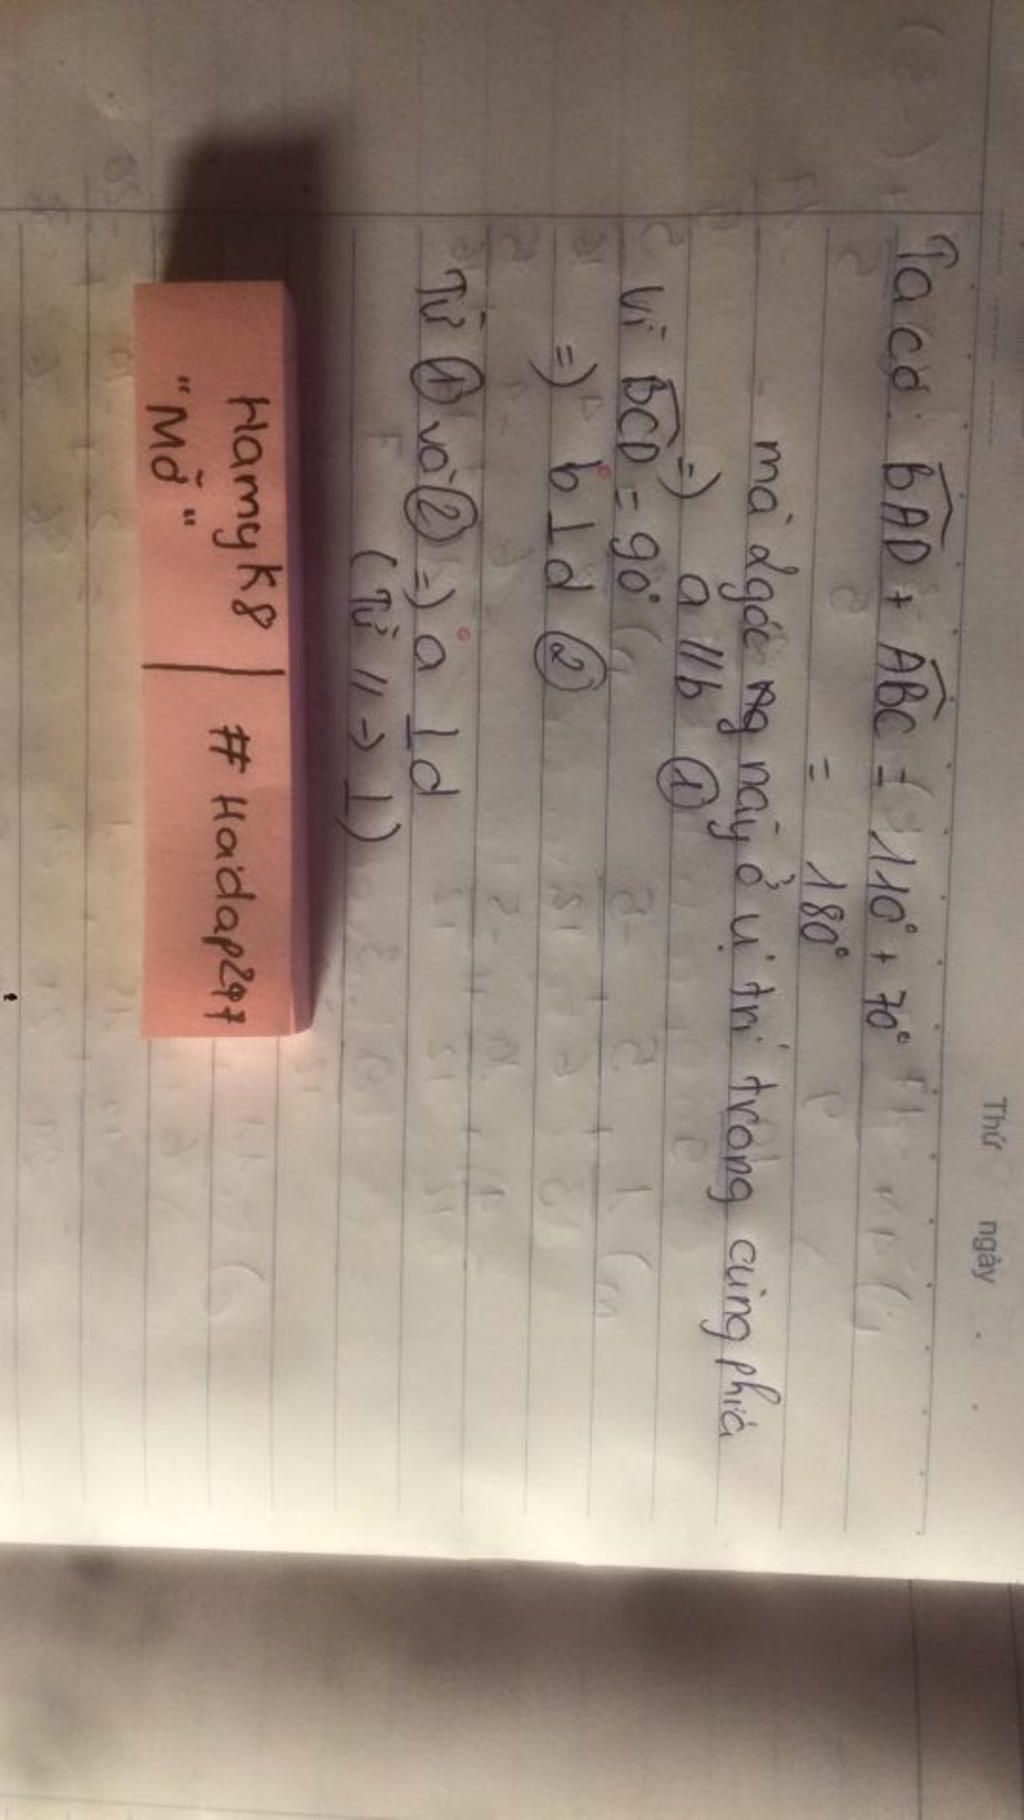 Thứ ngày
Ta có: BAD + ABC = 110° + 70°
= 180°
mà 2 góc này ở vị trí trong cùng phía
=) a // b ①
Vì BCD = 90°
=) b ⊥ d ②
Từ ① và ② =) a ⊥ d
(Từ // -> ⊥)
Hamyk8 | # Hoidap247
"Mở"